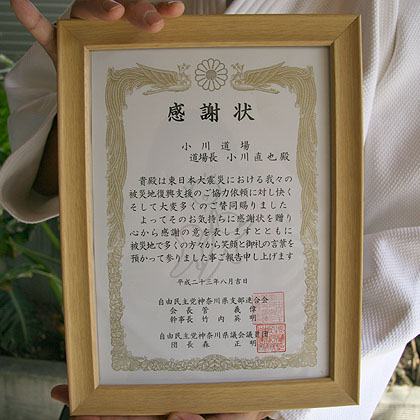 感謝状
小川道場
道場長 小川直也殿
貴殿は東日本大震災における我々の
被災地復興支援のご協力依頼に対し快く
そして大変多くのご賛同賜りました
よってそのお気持ちに感謝状を贈り
心から感謝の意を表しますとともに
被災地で多くの方々から笑顔と御礼の言葉を
預かって参りました事ご報告申し上げます
平成二十三年八月吉日
自由民主党神奈川県支部連合会
会長 菅 義偉
幹事長 竹内英明
自由民主党神奈川県議会議員団
団長 森 正明